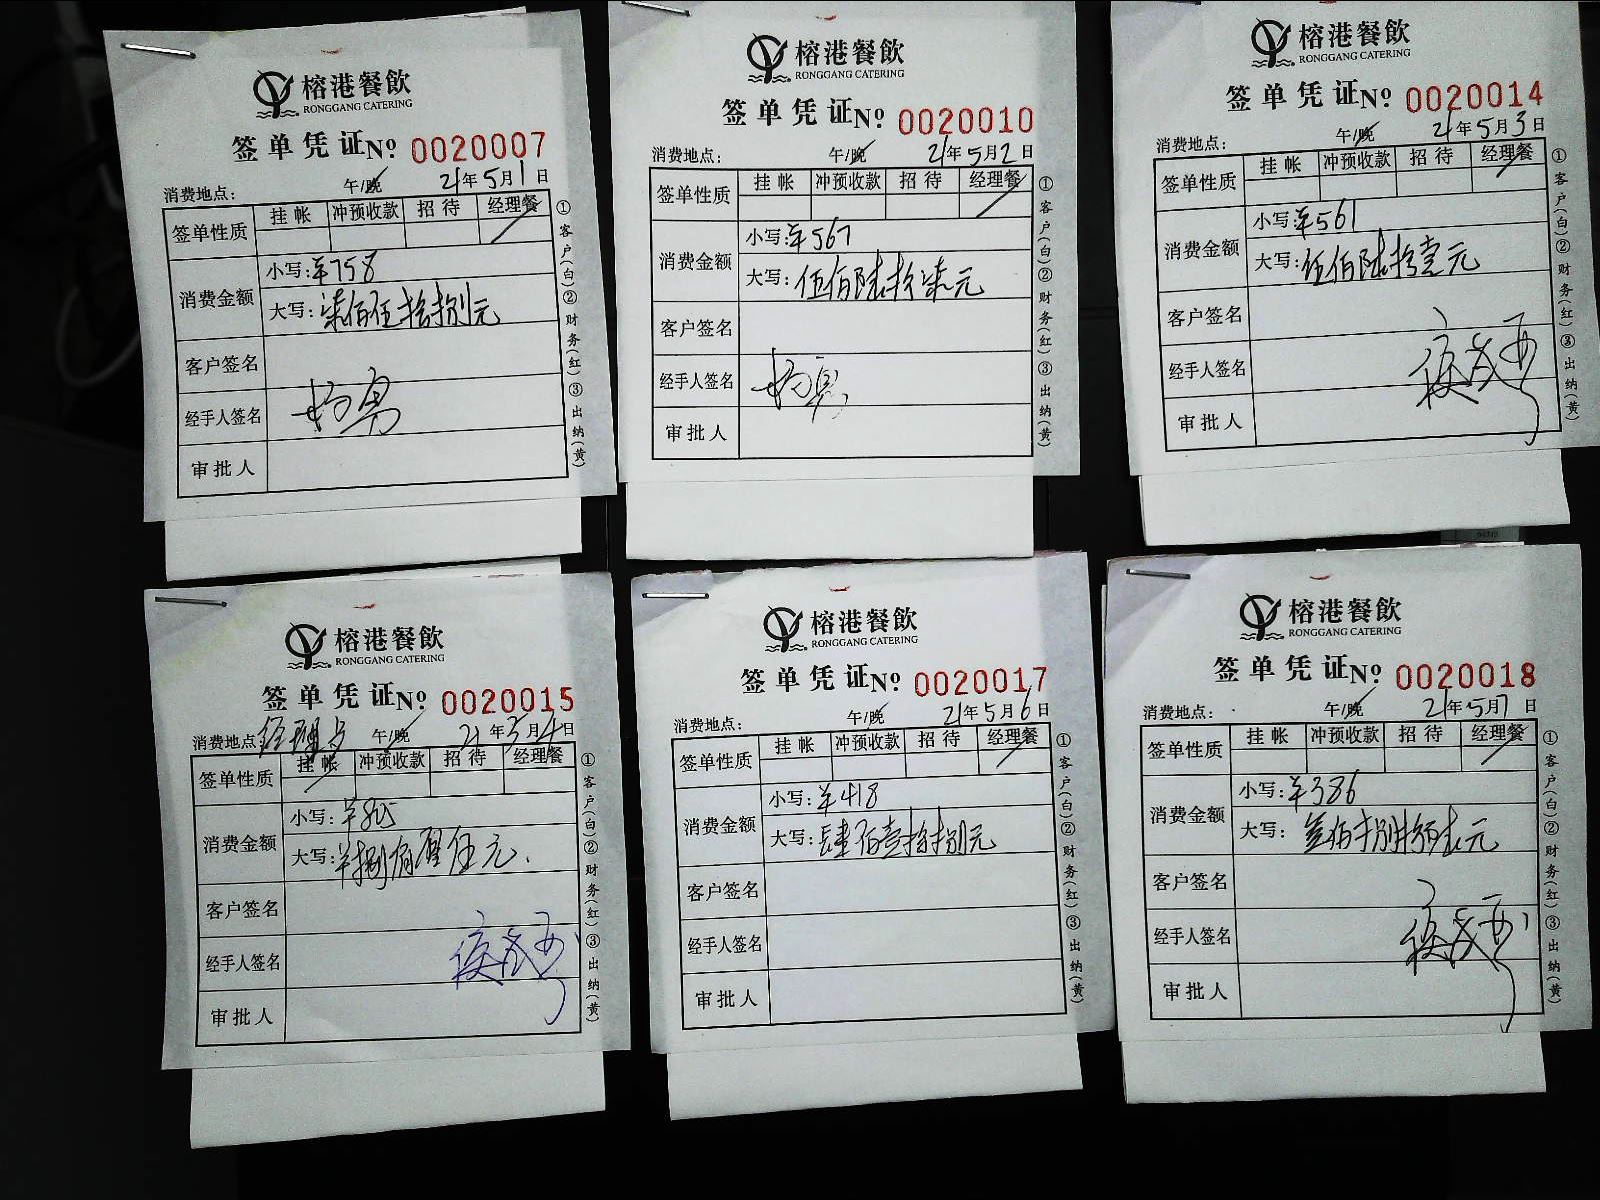 榕港餐飲
RONGGANG CATERING
签单凭证No 0020007
消费地点： 午/晚 21年5月1日
签单性质 挂帐 冲预收款 招待 经理餐
消费金额 小写：¥758
大写：柒佰伍拾捌元
客户签名
经手人签名
审批人
①客户(白)②财务(红)③出纳(黄)
榕港餐飲
RONGGANG CATERING
签单凭证No 0020010
消费地点： 午/晚 21年5月2日
签单性质 挂帐 冲预收款 招待 经理餐
消费金额 小写：¥567
大写：伍佰陆拾柒元
客户签名
经手人签名
审批人
①客户(白)②财务(红)③出纳(黄)
榕港餐飲
RONGGANG CATERING
签单凭证No 0020014
消费地点： 午/晚 21年5月3日
签单性质 挂帐 冲预收款 招待 经理餐
消费金额 小写：¥561
大写：伍佰陆拾壹元
客户签名
经手人签名
审批人
①客户(白)②财务(红)③出纳(黄)
榕港餐飲
RONGGANG CATERING
签单凭证No 0020015
消费地点： 午/晚 21年5月4日
签单性质 挂帐 冲预收款 招待 经理餐
消费金额 小写：¥805
大写：¥捌佰零伍元.
客户签名
经手人签名
审批人
①客户(白)②财务(红)③出纳(黄)
榕港餐飲
RONGGANG CATERING
签单凭证No 0020017
消费地点： 午/晚 21年5月6日
签单性质 挂帐 冲预收款 招待 经理餐
消费金额 小写：¥418
大写：肆佰壹拾捌元
客户签名
经手人签名
审批人
①客户(白)②财务(红)③出纳(黄)
榕港餐飲
RONGGANG CATERING
签单凭证No 0020018
消费地点： 午/晚 21年5月7日
签单性质 挂帐 冲预收款 招待 经理餐
消费金额 小写：¥386
大写：叁佰捌拾陆元
客户签名
经手人签名
审批人
①客户(白)②财务(红)③出纳(黄)